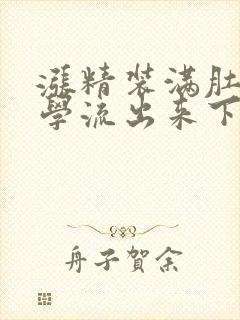 漲精装满肚
學流出来下
舟子賀余